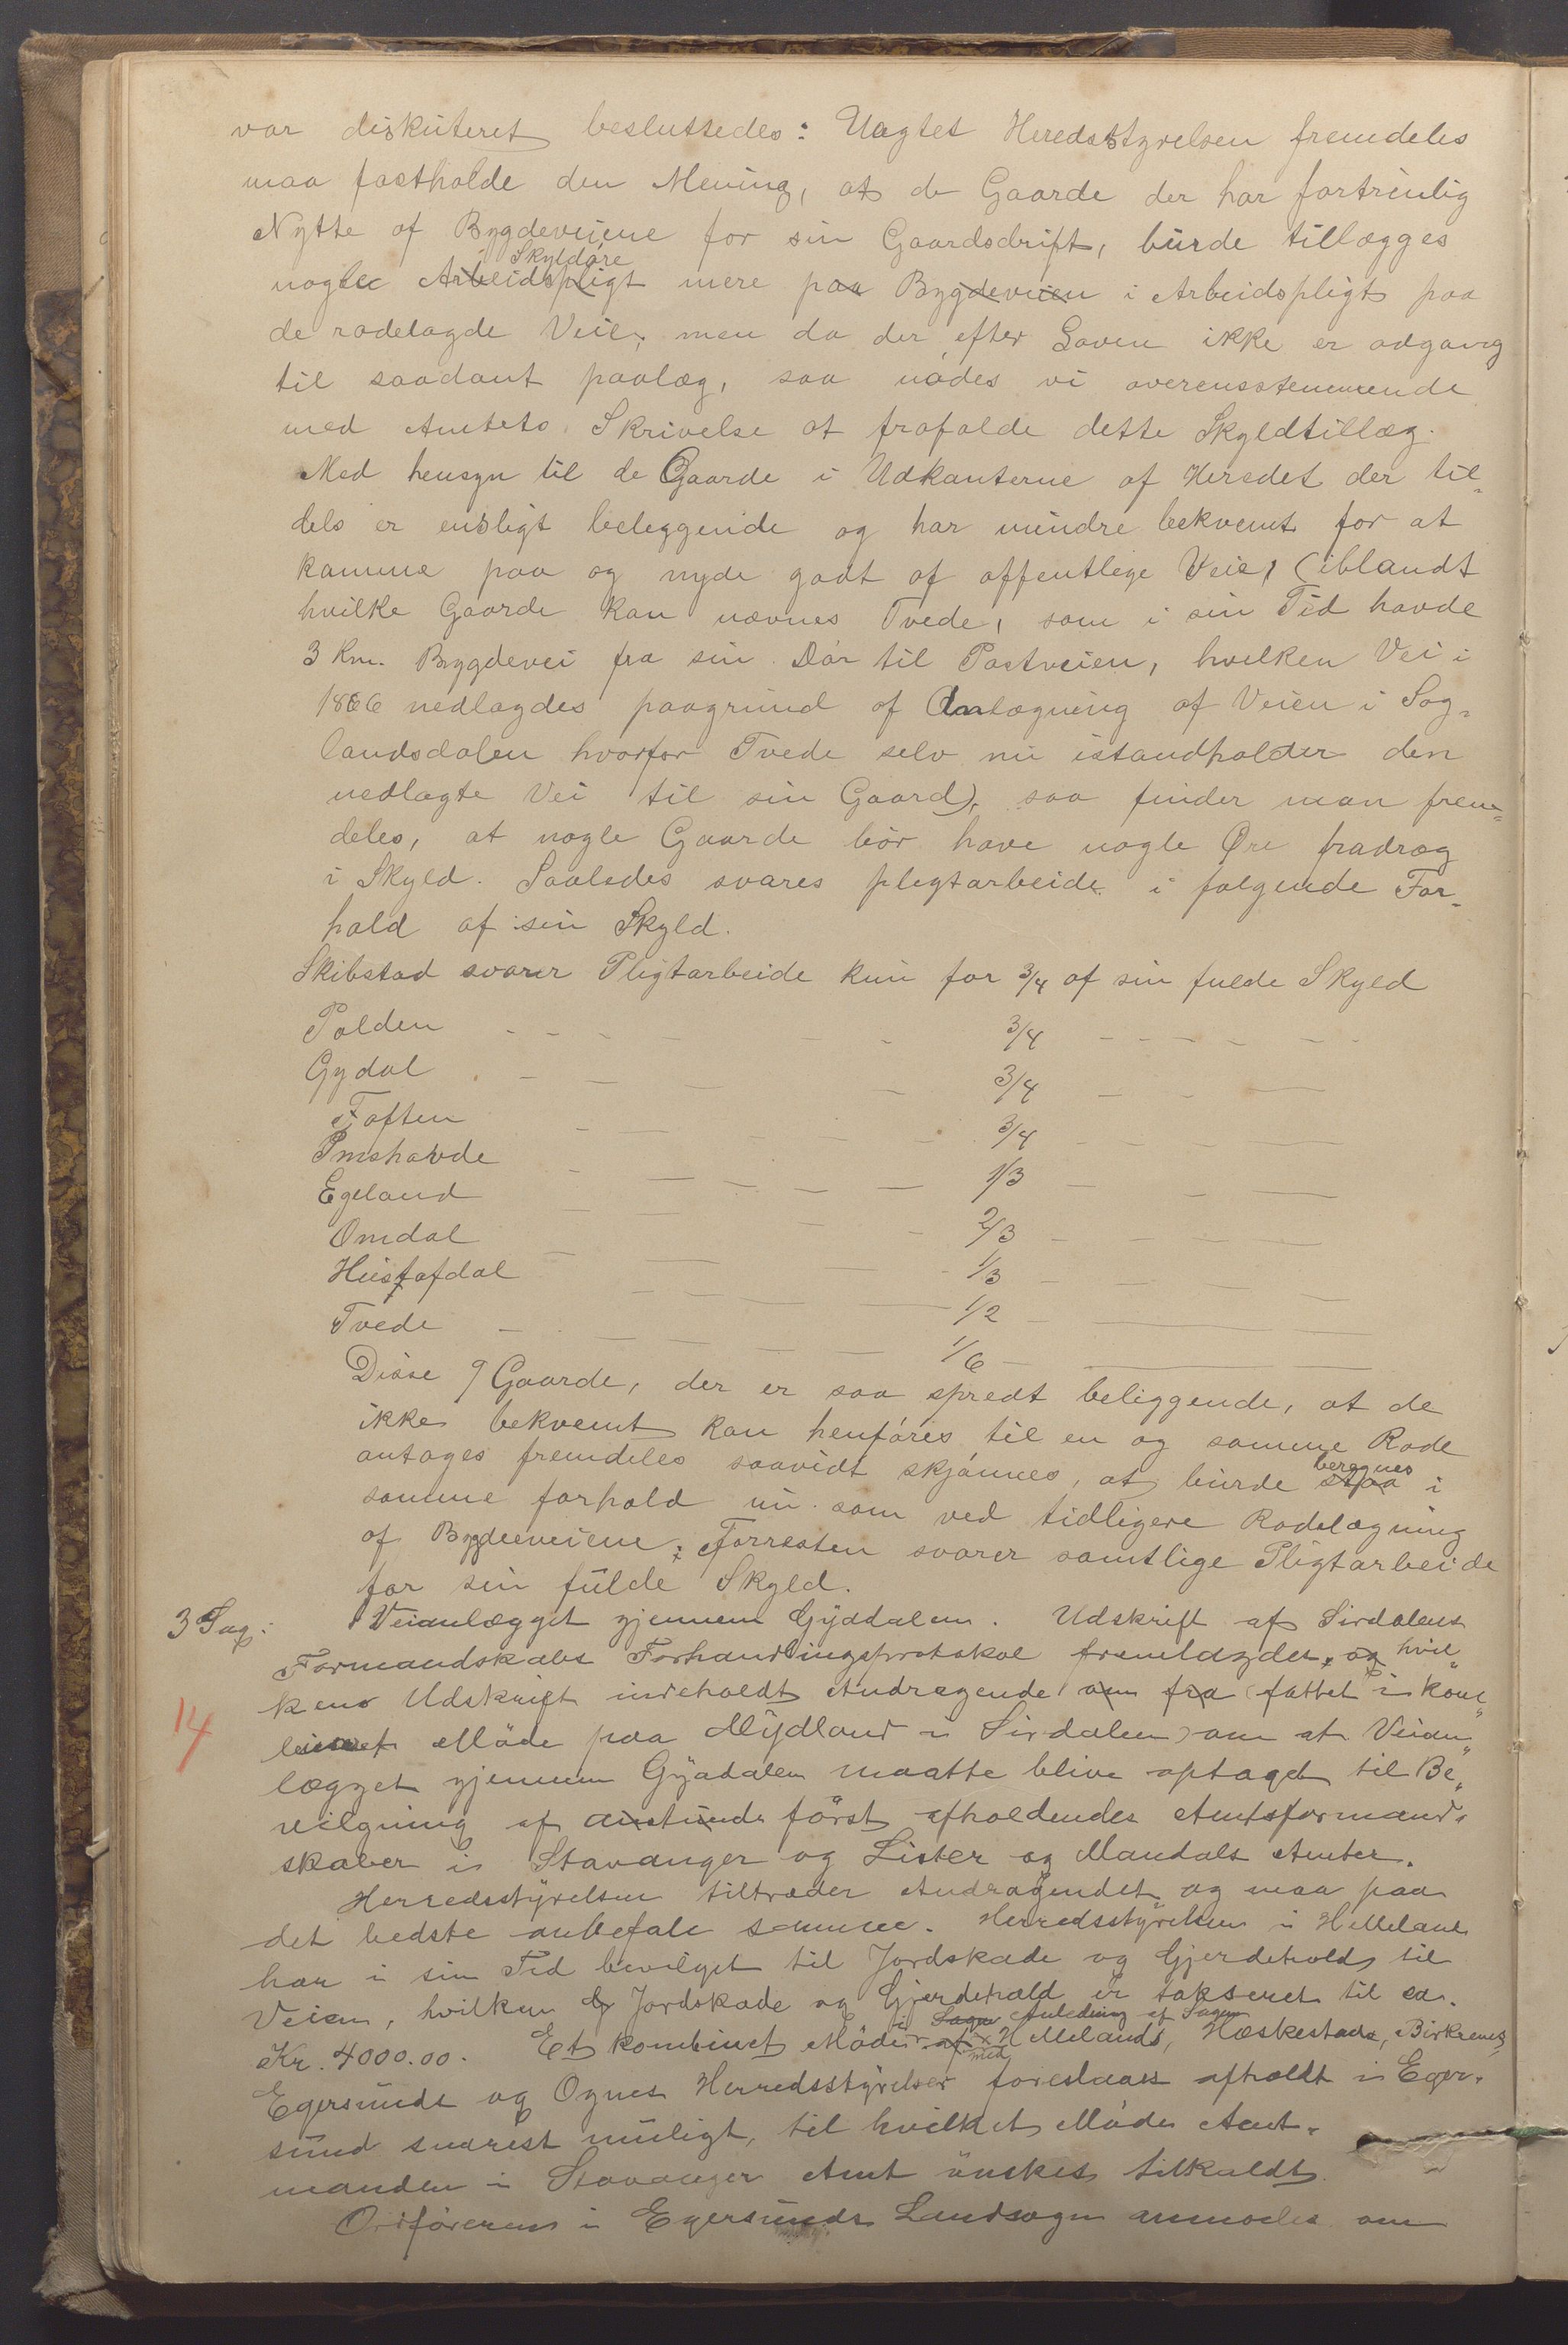 var diskuteret besluttedes: Uagtet Heredsstyrelsen fremdeles
maa fastholde den Mening, at de Gaarde der har fortrinlig
Nytte af Bygdeveiene for sin Gaardsdrift, burde tillægges
Skyldøre
nogle Arbeidspligt mere paa Bygdeveien i Arbeidspligt paa
de rodelagde Veie, men da der efter Loven ikke er adgang
til saadant paalæg, saa nødes vi overensstemmende
med Amtets Skrivelse at frafalde dette Skyldtillæg.
Med hensyn til de Gaarde i Udkanterne af Heredet der til-
dels er ensligt beleggende og har mindre bekvemt for at
komme paa og nyde godt af offentlige Veie, (iblandt
hvilke Gaarde kan nævnes Tvede, som i sin Tid havde
3 Km. Bygdevei fra sin Dør til Postveien, hvilken Vei i
1866 nedlagdes paagrund af Anlægning af Veien i Sog-
landsdalen hvorfor Tvede selv nu istandholder den
nedlagte Vei til sin Gaard), saa finder man frem-
deles, at nogle Gaarde bør have nogle Øre fradrag
i Skyld. Saaledes svares plegtarbeide i følgende For-
hold af sin Skyld.
Skibstad svarer Pligtarbeide kun for 3/4 af sin fulde Skyld
Polden - - - - - - 3/4 - - - - - -
Gydal - - - - 3/4 - - -
Toften - - - - 3/4 - - - -
Imshavde - - - - - 1/3 - - -
Egeland - - - - 2/3 - - - -
Omdal - - - - 1/3 - - - -
Hustofdal - - - - 1/2 - - -
Tvede - - - - - 1/6 - - -
Disse 9 Gaarde, der er saa spredt beliggende, at de
ikke bekvemt kan henføres til en og samme Rode
antages fremdeles saavidt skjønnes, at burde staa i
beregnes
samme forhold nu som ved tidligere Rodelægning
af Bygdeveiene; Forresten svarer samtlige Pligtarbeide
for sin fulde Skyld.
3 Sag: Veianlægget gjennem Gyadalen. Udskrift af Sirdalens
Formandskabs Forhandlingsprotokol fremlagdes, og hvil-
kens Udskrift indeholdt Andragende om fra (fattet i kom-
14
bineret Møde paa Mydland i Sirdalen) om at Veian-
lægget gjennem Gyadalen maatte blive optaget til Be-
vilgning af først afholdendes Amtsformand-
skaber i Stavanger og Lister og Mandals Amter.
Herredsstyrelsen tiltræder Andragendet og maa paa
det bedste anbefale samme. Herredsstyrelsen i Helleland
har i sin Tid bevilget til Jordskade og Gjerdehold til
Veien, hvilken Jordskade og Gjerdehold er takseret til ca.
i Sagn Anledning af Sagen
Kr. 4000.00. Et kombinet Møde af Hellelands, Hæskestads, Birkrems,
med
Egersunds og Ognes Herredsstyrelser foreslaaes afholdt i Eger-
sund snarest muligt, til hvilket Møde Amt-
manden i Stavanger Amt ønskes tilkaldt.
Ordføreren i Egersunds Landsogn anmodes om